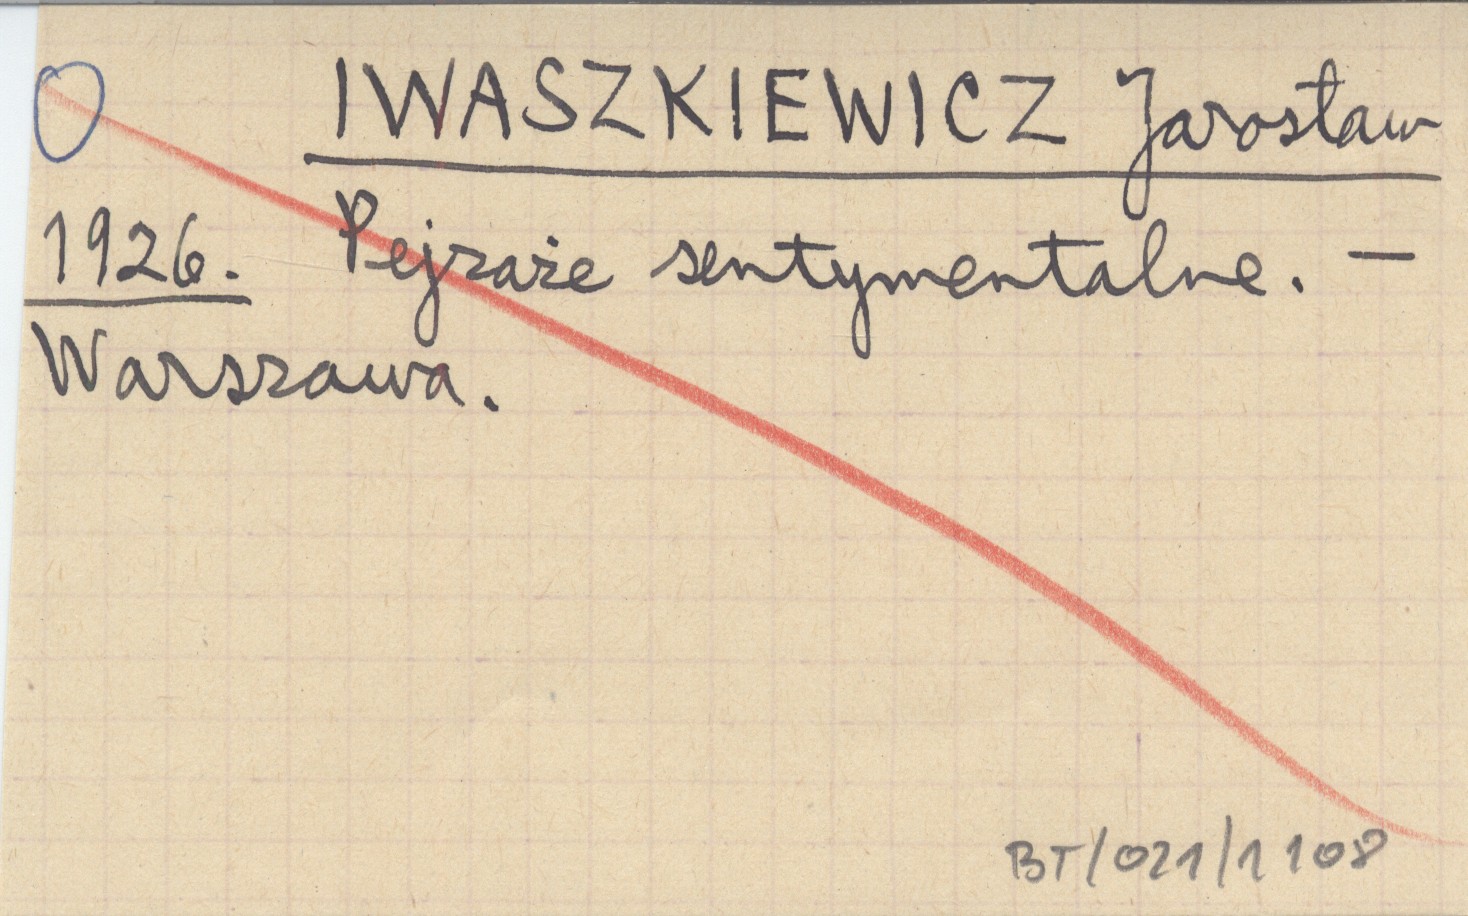 IWASZKIEWICZ Jarosław
1926. Pejzaże sentymentalne. —
Warszawa.
BT/021/1108